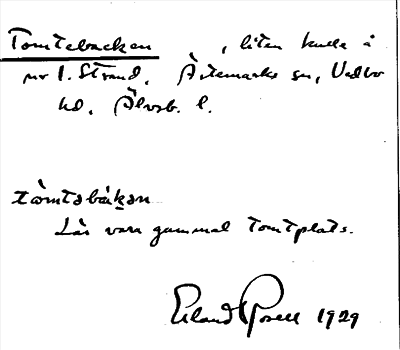 Tomtebacken , liten kulle å
nr 1. Strand, Ärtemarks sn, Vedbo
hd, Älvsb. l.
tòmtəbàkən
Lär vara gammal tomtplats.
Erland Rosell 1929